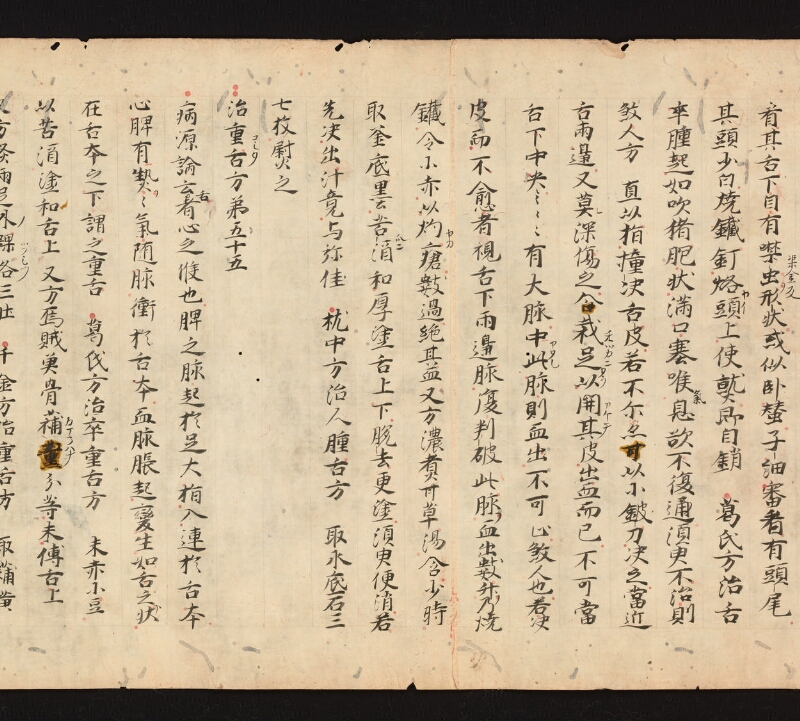 看其舌下自有噤虫形状或似卧蠶子細審看有頭尾
其頭少白焼鐵釘烙頭上使熟即自銷 葛氏方治舌
卒腫起如吹猪胞状満口塞喉息欲不復通須臾不治則
煞人方 直以指撞決舌皮若不尓亦可以小鈹刀決之當近
舌兩邊又莫深傷之令裁足以開其皮出血而已不可當
舌下中央〻〻〻有大脉中此脉則血出不可止煞人也若決
皮而不愈者視舌下兩邊脉復判破此脉血出數升乃焼
鐵令小赤以灼瘡數過絶其益又方濃煮甘草湯含少時
取釜底墨苦酒和厚塗舌上下脱去更塗須臾便消若
先決出汁竟与弥佳 枕中方治人腫舌方 取水底石三
七枚熨之
治重舌方第五十五
病源論云舌者心之候也脾之脉起於足大指入連於舌本
心脾有熱〻氣随脉衝於舌本血脉脹起變生如舌之状
在舌本之下謂之重舌 葛氏方治卒重舌方 末赤小豆
以苦酒塗和舌上 又方烏賊魚骨蒲黄分等末傅舌上
又方灸兩足外踝各三壮 千金方治重舌方 取蒲黄